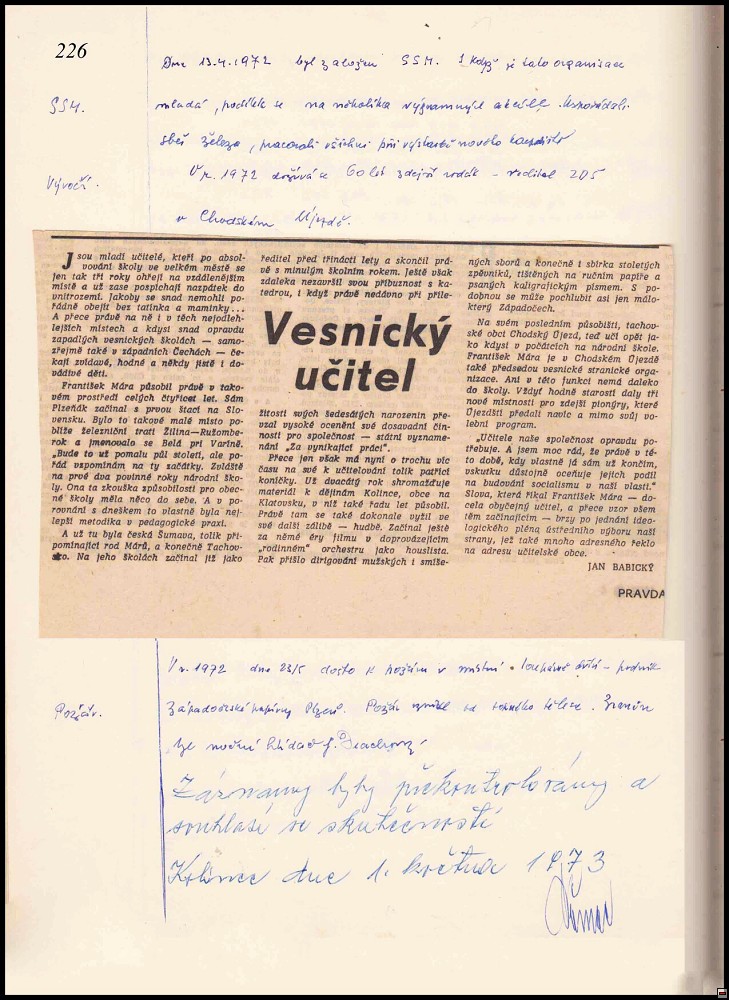 226
Dne 13.4.1972 byl založen SSM. I když je tato organisace
SSM.
mladá, podílela se na několika významných akcích. Uspořádali
sběr železa, pracovali všichni při výstavbě nového
Výročí.
V r. 1972 dožívá se 60 let zdejší rodák - ředitel ZDŠ
v Chodském Újezdě.
Jsou mladí učitelé, kteří po absol-
vování školy ve velkém městě se
jen tak tři roky ohřejí na vzdálenějším
místě a už zase pospíchají nazpátek do
vnitrozemí. Jakoby se snad nemohli po-
řádně obejít bez tatínka a maminky...
A přece právě na ně i v těch nejodleh-
lejších místech a kdysi snad opravdu
zapadlých vesnických školách — samo-
zřejmě také v západních Čechách — če-
kají zvídavé, hodné a někdy jistě i do-
váděvé děti.
František Mára působil právě v tako-
vém prostředí celých čtyřicet let. Sám
Plzeňák začínal s prvou štací na Slo-
vensku. Bylo to takové malé místo po-
blíže železniční trati Žilina—Ružombe-
rok a jmenovalo se Belá při Varíne.
„Bude to už pomalu půl století, ale po-
řád vzpomínám na ty začátky. Zvláště
na prvé dva povinné roky národní ško-
ly. Ona ta zkouška způsobilosti pro obec-
né školy měla něco do sebe. A v po-
rovnání s dneškem to vlastně byla nej-
lepší metodika v pedagogické praxi.
A už tu byla česká Šumava, tolik při-
pomínající rod Márů, a konečně Tachov-
sko. Na jeho školách začínal již jako
ředitel před třinácti lety a skončil prá-
vě s minulým školním rokem. Ještě však
zdaleka nezavršil svou příbuznost s ka-
tedrou, i když právě nedávno při příle-
Vesnický
učitel
žitosti svých šedesátých narozenin pře-
vzal vysoké ocenění své dosavadní čin-
nosti pro společnost — státní vyzname-
nání „Za vynikající práci".
Přece jen však má nyní o trochu víc
času na své k učitelování tolik patřící
koníčky. Už dvacátý rok shromažďuje
materiál k dějinám Kolince, obce na
Klatovsku, v níž také řadu let působil.
Právě tam se také dokonale vyžil ve
své další zálibě — hudbě. Začínal ještě
za němé éry filmu v doprovázejícím
„rodinném" orchestru jako houslista.
Pak přišlo dirigování mužských i smíše-
ných sborů a konečně i sbírka stoletých
zpěvníků, tištěných na ručním papíře a
psaných kaligrafickým písmem. S po-
dobnou se může pochlubit asi jen málo-
který Západočech.
Na svém posledním působišti, tachov-
ské obci Chodský Újezd, teď učí opět ja-
ko kdysi v počátcích na národní škole.
František Mára je v Chodském Újezdě
také předsedou vesnické stranické orga-
nizace. Ani v této funkci nemá daleko
do školy. Vždyť hodně starostí daly tři
nové místnosti pro zdejší pionýry, které
Újezdští předali navíc a mimo svůj vo-
lební program.
„Učitele naše společnost opravdu po-
třebuje. A jsem moc rád, že právě v té-
to době, kdy vlastně já sám už končím,
vskutku důstojně oceňuje jejich podíl
na budování socialismu v naší vlasti."
Slova, která říkal František Mára — do-
cela obyčejný učitel, a přece vzor všem
těm začínajícím — brzy po jednání ideo-
logického pléna ústředního výboru naší
strany, jež také mnoho adresného řeklo
na adresu učitelské obce.
JAN BABICKÝ
PRAVDA
V r. 1972 dne 23/5 došlo k požáru v místní - podnik
Požár.
Západočeské papírny Plzeň. Požár vznikl od topného tělesa. Zraněn
byl noční hlídač J.
Záznamy byly překontrolovány a
souhlasí se skutečností
Kolinec dne 1. května 1973